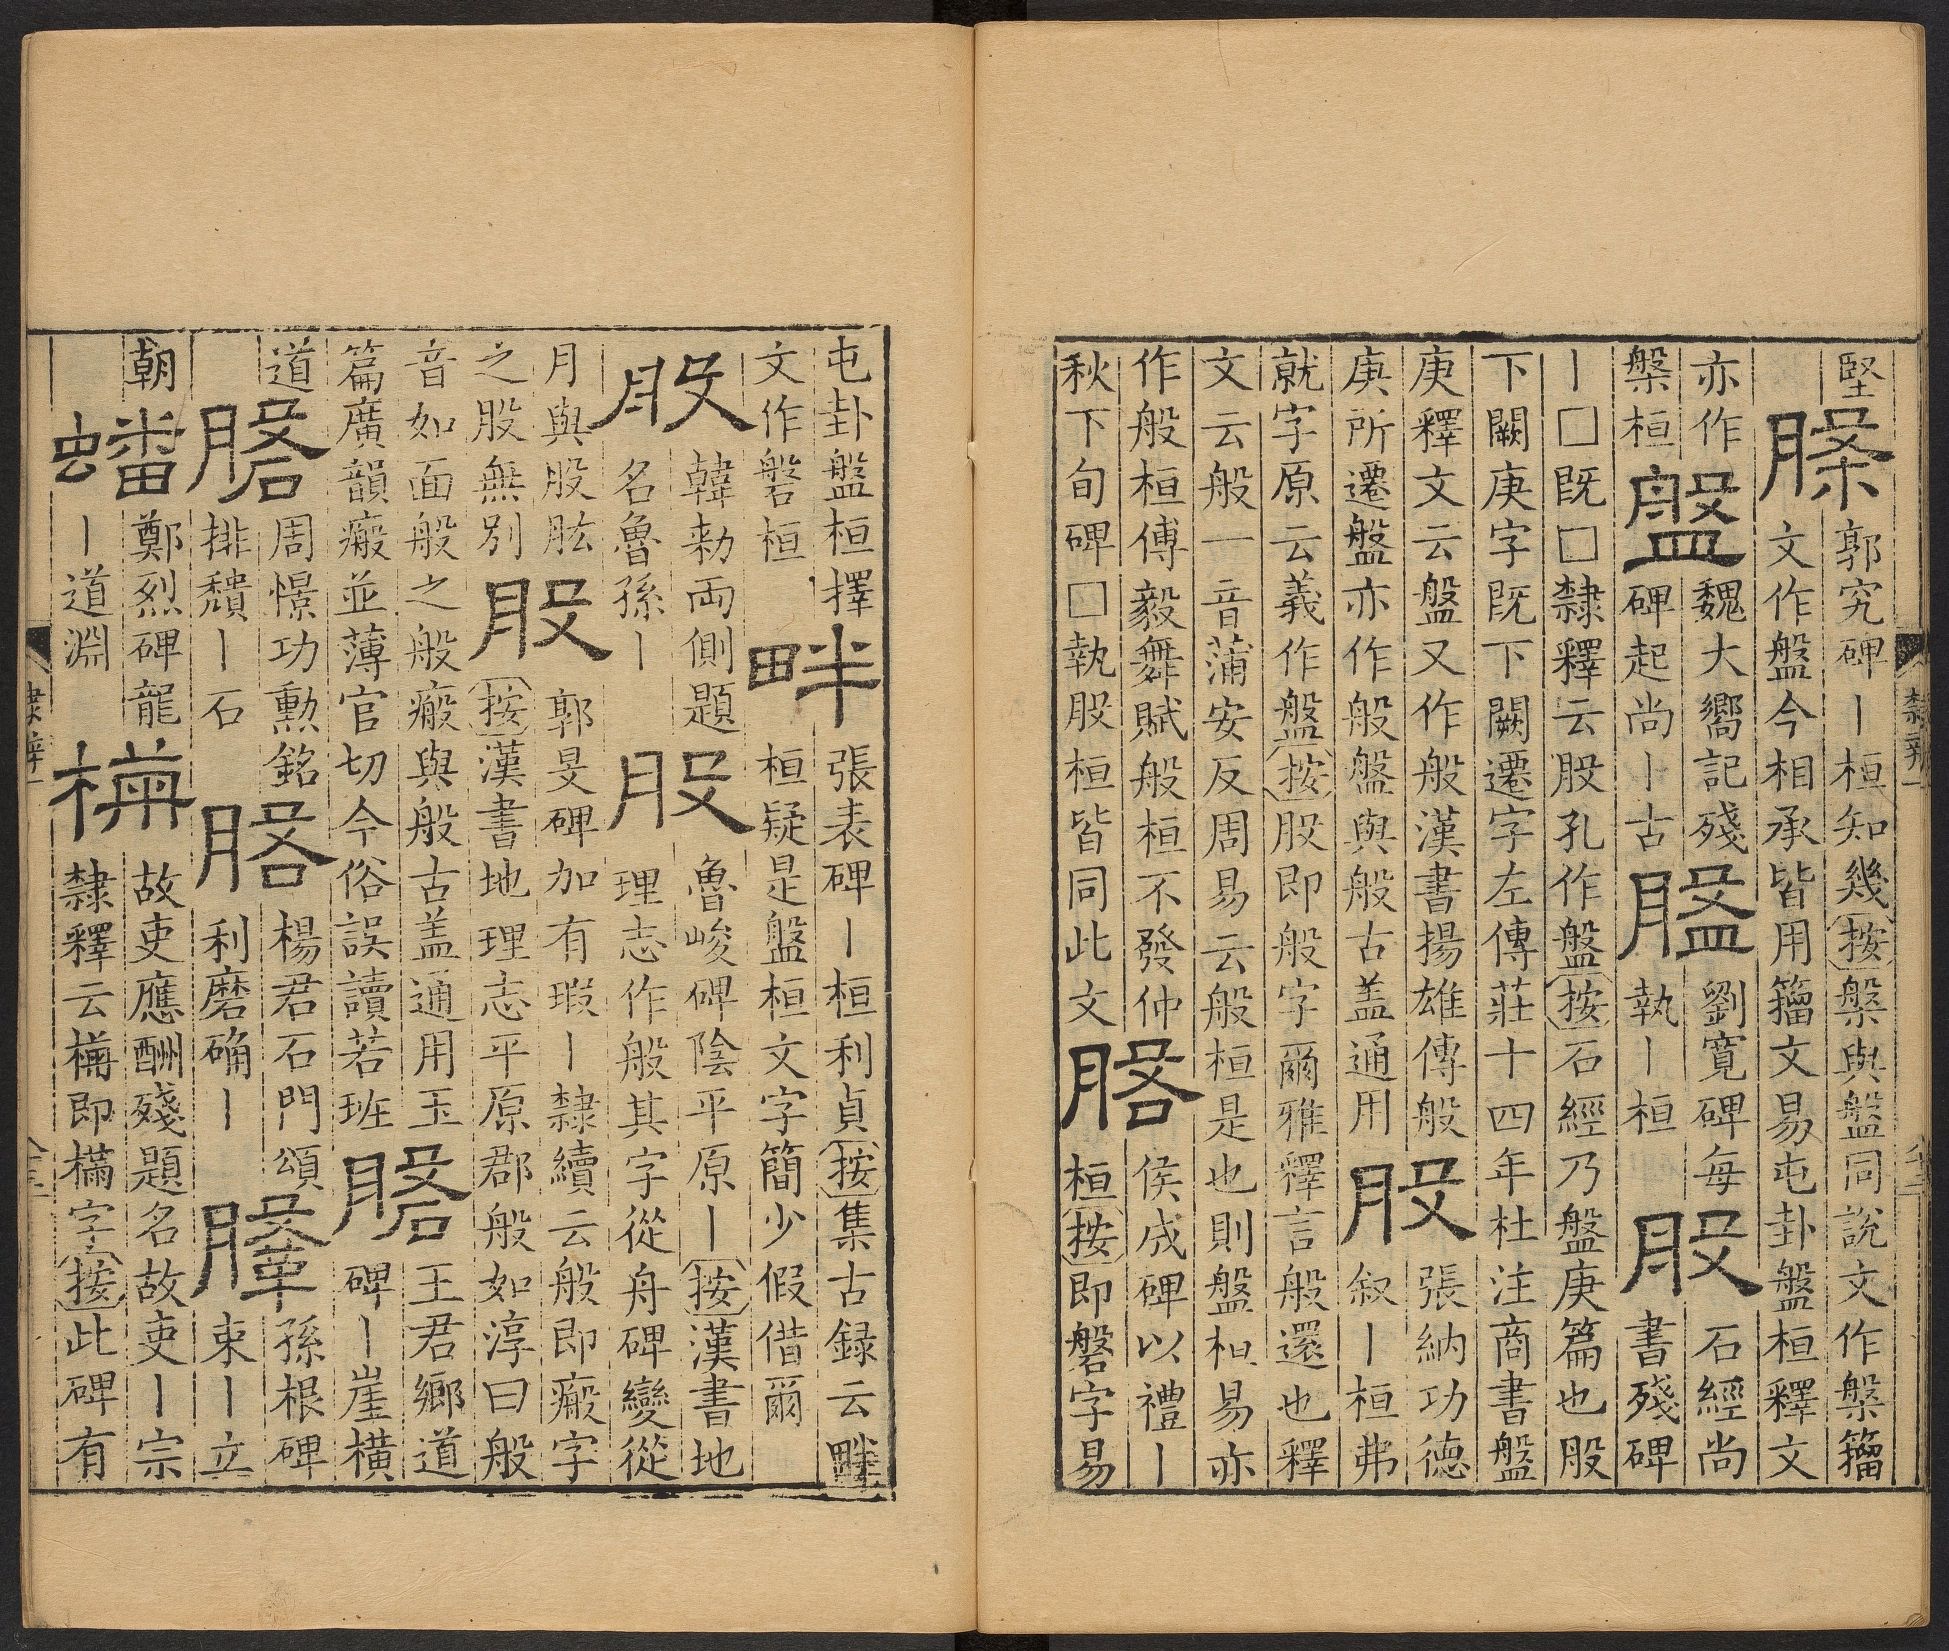 堅
槃
郭究碑丨桓知幾按槃與盤同說文作槃籀
文作盤今相承皆用籀文易屯卦盤桓釋文
亦作
槃桓
盤
魏大嚮記殘
碑起尚丨古
盤
劉寬碑每
執丨桓
股
石經尚
書殘碑
丨□既□隸釋云股孔作盤按石經乃盤庚篇也股
下闕庚字既下闕遷字左傳莊十四年杜注商書盤
庚釋文云盤又作般漢書揚雄傳般
庚所遷盤亦作般盤與般古盖通用
股
張納功德
叙丨桓弗
就字原云義作盤按股即般字爾雅釋言般還也釋
文云般一音蒲安反周易云般桓是也則盤桓易亦
作般桓傅毅舞賦般桓不發仲
秋下旬碑□執股桓皆同此文
磐
侯成碑以禮丨
桓按即磐字易
屯卦盤桓擇
文作磐桓
畔
張表碑丨桓利貞按集古録云畔
桓疑是盤桓文字簡少假借爾
股
韓勑両側題
名魯孫丨
股
魯峻碑陰平原丨按漢書地
理志作般其字從舟碑變從
月與股肱
之股無別
股
郭旻碑加有瑕丨隸續云般即瘢字
按漢書地理志平原郡般如淳曰般
音如面般之般瘢與般古盖通用玉
篇廣韻瘢並薄官切今俗誤讀若班
磐
王君鄉道
碑丨崖橫
道
磐
周憬功勳銘
排穨丨石
磐
楊君石門頌
利磨确丨
鞶
孫根碑
束丨立
朝
蟠
鄭烈碑龍
丨道淵
故吏應酬殘題名故吏丨宗
隸釋云即樠字按此碑有